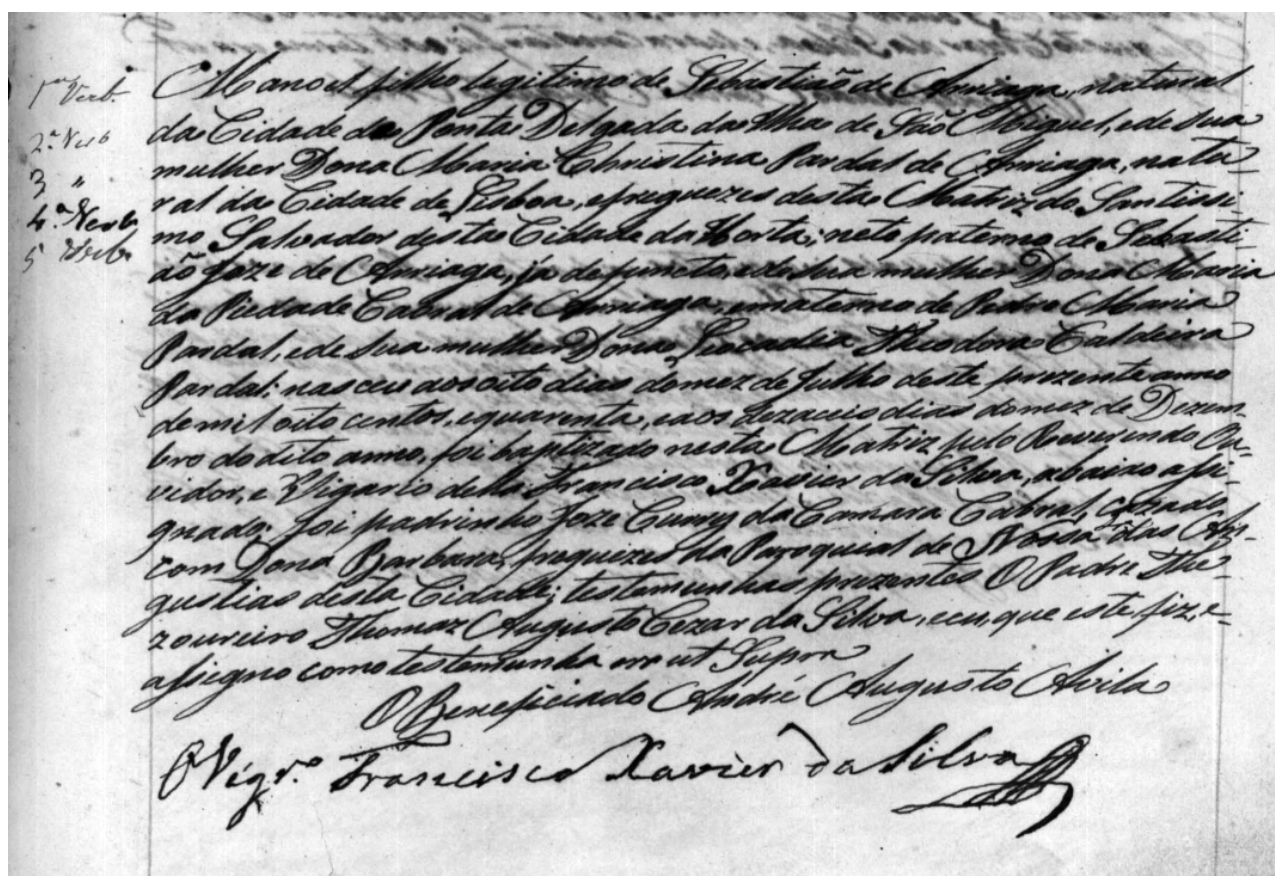 1.ª Verb.
2.ª Verb
3 "
4.ª Verb.
5 Verb.
Manoel filho legitimo de Sebastião de Arriaga, natural
da Cidade de Ponta Delgada da Ilha de São Miguel, e de sua
mulher Dona Maria Christina Pardal de Arriaga, natu-
ral da Cidade de Lisboa, e freguezes desta Matriz do Santissi-
mo Salvador desta Cidade da Horta; neto paterno de Sebasti-
ão Joze de Arriaga, já defuncto, e de sua mulher Dona Maria
da Piedade Cabral de Arriaga, e materno de Pedro Maria
Pardal, e de sua mulher Dona Leocadia Theodora Caldeira
Pardal: nasceu aos oito dias do mez de Julho deste prezente anno
de mil oito centos, e quarenta, e aos dezaceis dias do mez de Dezem-
bro do dito anno, foi baptizado nesta Matriz pelo Reverendo Ou-
vidor, e Vigario della Francisco Xavier da Silva, abaixo assi-
gnado: foi padrinho Joze Curry da Camara Cabral, cazado
com Dona Barbara, freguezes da Paroquial de Nossa das An-
gustias desta Cidade; testemunhas prezentes O Padre The-
zoureiro Thomaz Augusto Cezar da Silva, e eu, que este fiz, e
assigno como testemunha era ut Supra
O Beneficiado André Augusto Avila
O Vigr.º Francisco Xavier da Silva